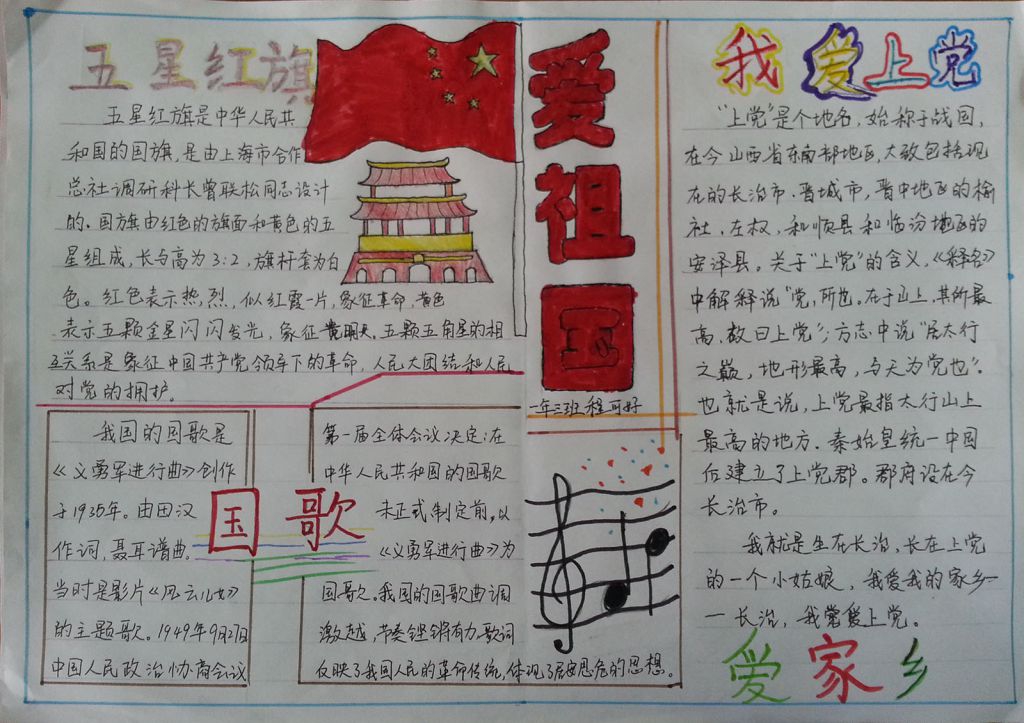 五星红旗
五星红旗是中华人民共
和国的国旗,是由上海市合作
总社调研科长曾联松同志设计
的.国旗由红色的旗面和黄色的五
星组成,长与高为3:2,旗杆套为白
色。红色表示热烈,似红霞一片,象征革命,黄色
表示五颗金星闪闪发光,象征光明。五颗五角星的相
互关系是象征中国共产党领导下的革命,人民大团结和人民
对党的拥护。
爱祖国
一年三班 程可好
国歌
我国的国歌是
《义勇军进行曲》创作
于1935年。由田汉
作词,聂耳谱曲.
当时是影片《风云儿女》
的主题歌。1949年9月27日
中国人民政治协商会议
第一届全体会议决定:在
中华人民共和国的国歌
未正式制定前,以
《义勇军进行曲》为
国歌。我国的国歌曲调
激越,节奏铿锵有力.歌词
反映了我国人民的革命传统,体现了居安思危的思想。
我爱上党
"上党"是个地名,始称于战国,
在今山西省东南部地区,大致包括现
在的长治市.晋城市,晋中地区的榆
社.左权,和顺县和临汾地区的
安泽县。关于"上党"的含义,《释名》
中解释说"党,所也。在于山上,其所最
高,故曰上党";方志中说"居太行
之巅,地形最高,与天为党也".
也就是说,上党最指太行山上
最高的地方.秦始皇统一中国
后建立了上党郡。郡府设在今
长治市。
我就是生在长治,长在上党
的一个小姑娘,我爱我的家乡—
—长治,我爱上党。
爱家乡